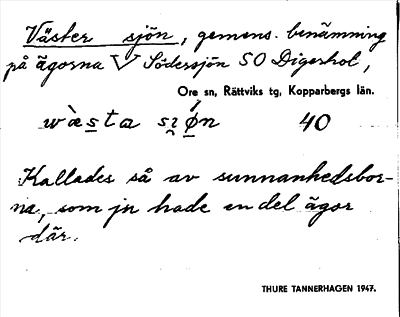 Väster sjön, gemens. benämning
på ägorna V Södersjön SO Digerhol,
Ore sn, Rättviks tg, Kopparbergs län.
wὰsta sɿøn 40
Kallades så av sunnanhedsbor-
na, som ju hade en del ägor
där.
THURE TANNERHAGEN 1947.